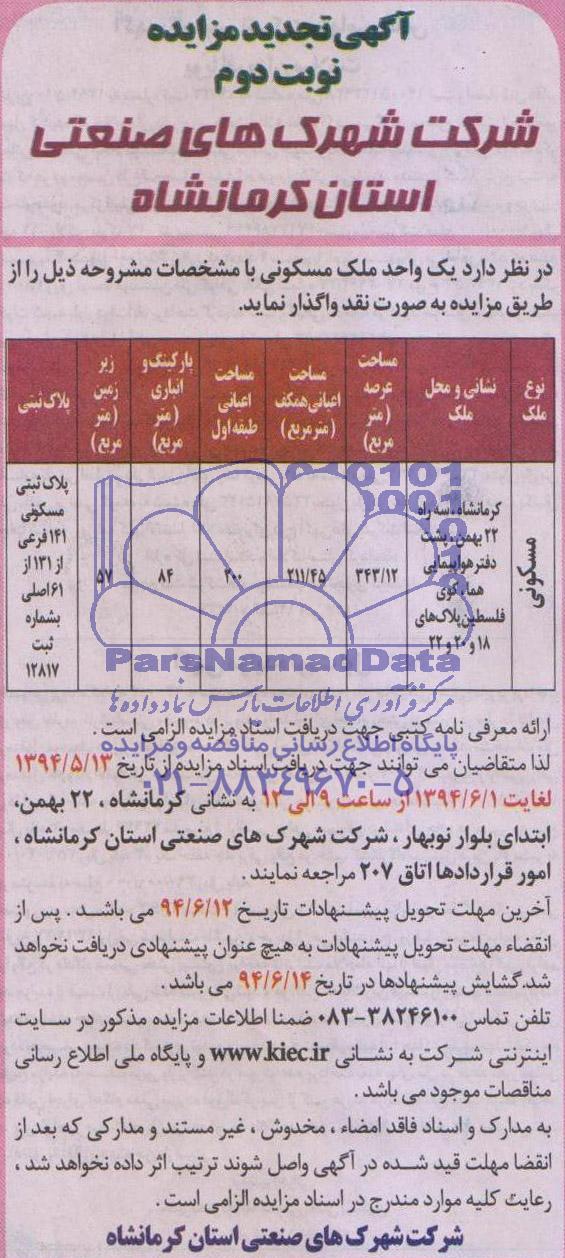 آگهی تجدید مزایده
نوبت دوم
شرکت شهرک های صنعتی
استان کرمانشاه
در نظر دارد یک واحد ملک مسکونی با مشخصات مشروحه ذیل را از
طریق مزایده به صورت نقد واگذار نماید.
نوع ملک
نشانی و محل ملک
مساحت عرصه (متر مربع)
مساحت اعیانی همکف (متر مربع)
مساحت اعیانی طبقه اول
پارکینگ و انباری (متر مربع)
زیر زمین (متر مربع)
پلاک ثبتی
مسکونی
کرمانشاه، سه راه
۲۲ بهمن، پشت
دفتر هواپیمایی
هما، کوی
فلسطین پلاک‌های
۱۸ و ۲۰ و ۲۲
۳۴۳/۱۲
۲۱۱/۴۵
۲۰۰
۸۴
۵۷
پلاک ثبتی
مسکونی
۱۴۱ فرعی
از ۱۳۱ از
۶۱ اصلی
بشماره
ثبت
۱۲۸۱۷
ParsNamadData
مرکز فرآوری اطلاعات پارس نماد داده ها
ارائه معرفی نامه کتبی جهت دریافت اسناد مزایده الزامی است.
پایگاه اطلاع رسانی مناقصه و مزایده
لذا متقاضیان می توانند جهت دریافت اسناد مزایده از تاریخ ۱۳۹۴/۵/۱۳
۰۲۱-۸۸۳۴۹۶۷۰-۵
لغایت ۱۳۹۴/۶/۱ از ساعت ۹ الی ۱۲ به نشانی کرمانشاه ، ۲۲ بهمن،
ابتدای بلوار نوبهار ، شرکت شهرک های صنعتی استان کرمانشاه ،
امور قراردادها اتاق ۲۰۷ مراجعه نمایند .
آخرین مهلت تحویل پیشنهادات تاریخ ۹۴/۶/۱۲ می باشد . پس از
انقضاء مهلت تحویل پیشنهادات به هیچ عنوان پیشنهادی دریافت نخواهد
شد.گشایش پیشنهادها در تاریخ ۹۴/۶/۱۴ می باشد .
تلفن تماس ۳۸۲۴۶۱۰۰-۰۸۳ ضمنا اطلاعات مزایده مذکور در سایت
اینترنتی شرکت به نشانی www.kiec.ir و پایگاه ملی اطلاع رسانی
مناقصات موجود می باشد .
به مدارک و اسناد فاقد امضاء ، مخدوش ، غیر مستند و مدارکی که بعد از
انقضا مهلت قید شده در آگهی واصل شوند ترتیب اثر داده نخواهد شد ،
رعایت کلیه موارد مندرج در اسناد مزایده الزامی است .
شرکت شهرک های صنعتی استان کرمانشاه